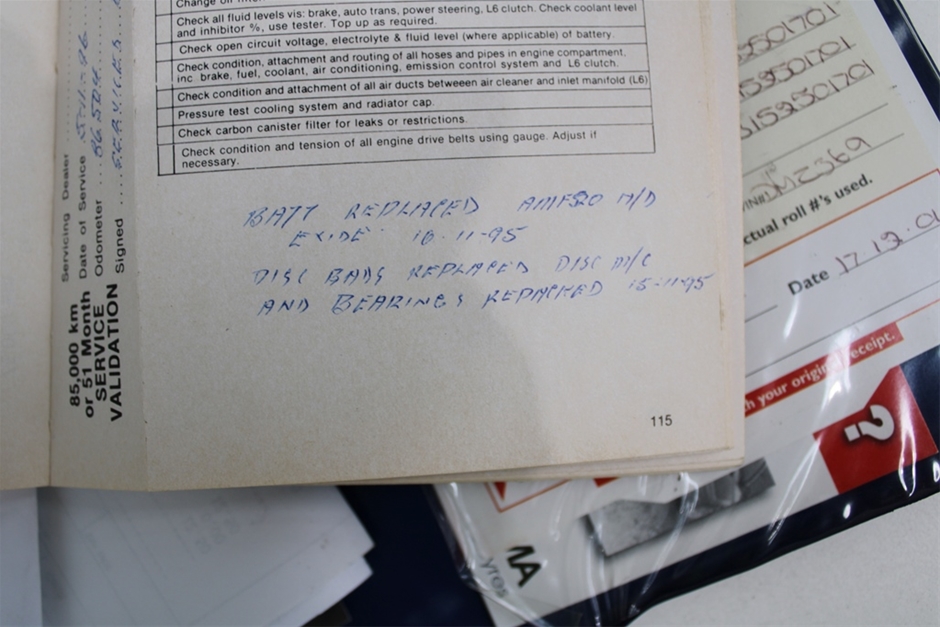 Check all fluid levels vis: brake, auto trans, power steering, L6 clutch. Check coolant level
and inhibitor %, use tester. Top up as required.
Check open circuit voltage, electrolyte & fluid level (where applicable) of battery.
Check condition, attachment and routing of all hoses and pipes in engine compartment,
inc. brake, fuel, coolant, air conditioning, emission control system and L6 clutch.
Check condition and attachment of all air ducts betweeen air cleaner and inlet manifold (L6)
Pressure test cooling system and radiator cap.
Check carbon canister filter for leaks or restrictions.
Check condition and tension of all engine drive belts using gauge. Adjust if
necessary.
BATT REPLACED M/D
EXIDE 10-11-95
DISC BADS REPLACED DISC M/C
AND BEARINGS REPACKED 15-11-95
115
85,000 km
or 51 Month
SERVICE
VALIDATION
Servicing Dealer
Date of Service
Odometer
Signed
ctual roll #'s used.
Date 17.12.01
h your original receipt.
?
yres